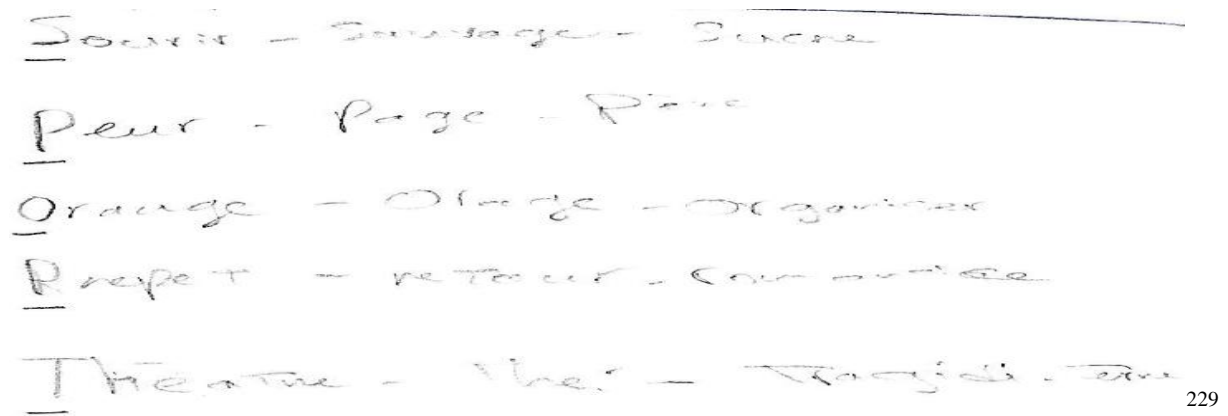 Sourir - Sauvage - Sucre
Peur - Page - Père
Orange - Otage - Organiser
Rrepet - retour -
Théatre - thé - Tragédi - Terre
229